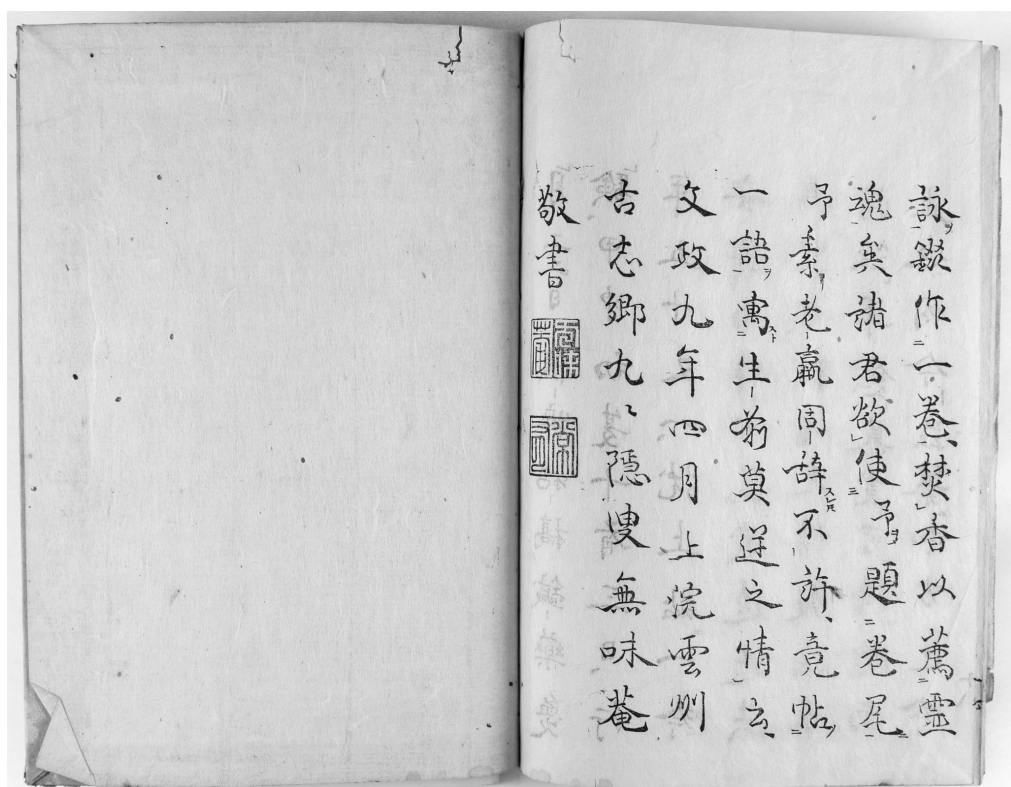 詠鑑作一巻焚香以薦霊
魂矣諸君欲使予題巻尾
予素老羸固辞不許竟帖
一語寓生前莫逆之情云
文政九年四月上浣雲州
古志郷九〻隠叟無味菴
敬書